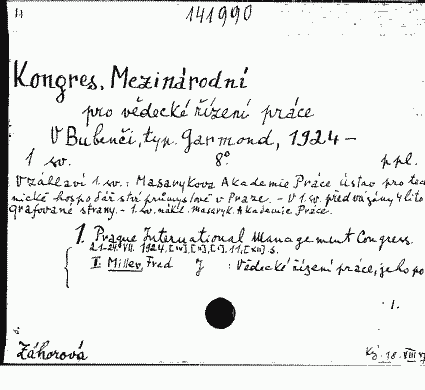 141990
Kongres, Mezinárodní
pro vědecké řízení práce
V Bubenči, typ. Garmond, 1924 –
1 sv. 8° ppl.
V záhlaví 1 sv.: Masarykova Akademie Práce ústav pro tech
nické hospodářství průmyslové v Praze. – V 1. sv. předvázány 4 lito
grafované strany. – 1. sv. nákl. Masaryk. Akademie Práce.
1. Prague International Management Congress.
21–24. VII. 1924. [IV], [V], [I], 11, [XII] s.
II. Miller, Fred J : Vědecké řízení práce, jeho po
1.
Záhorová 18. VIII